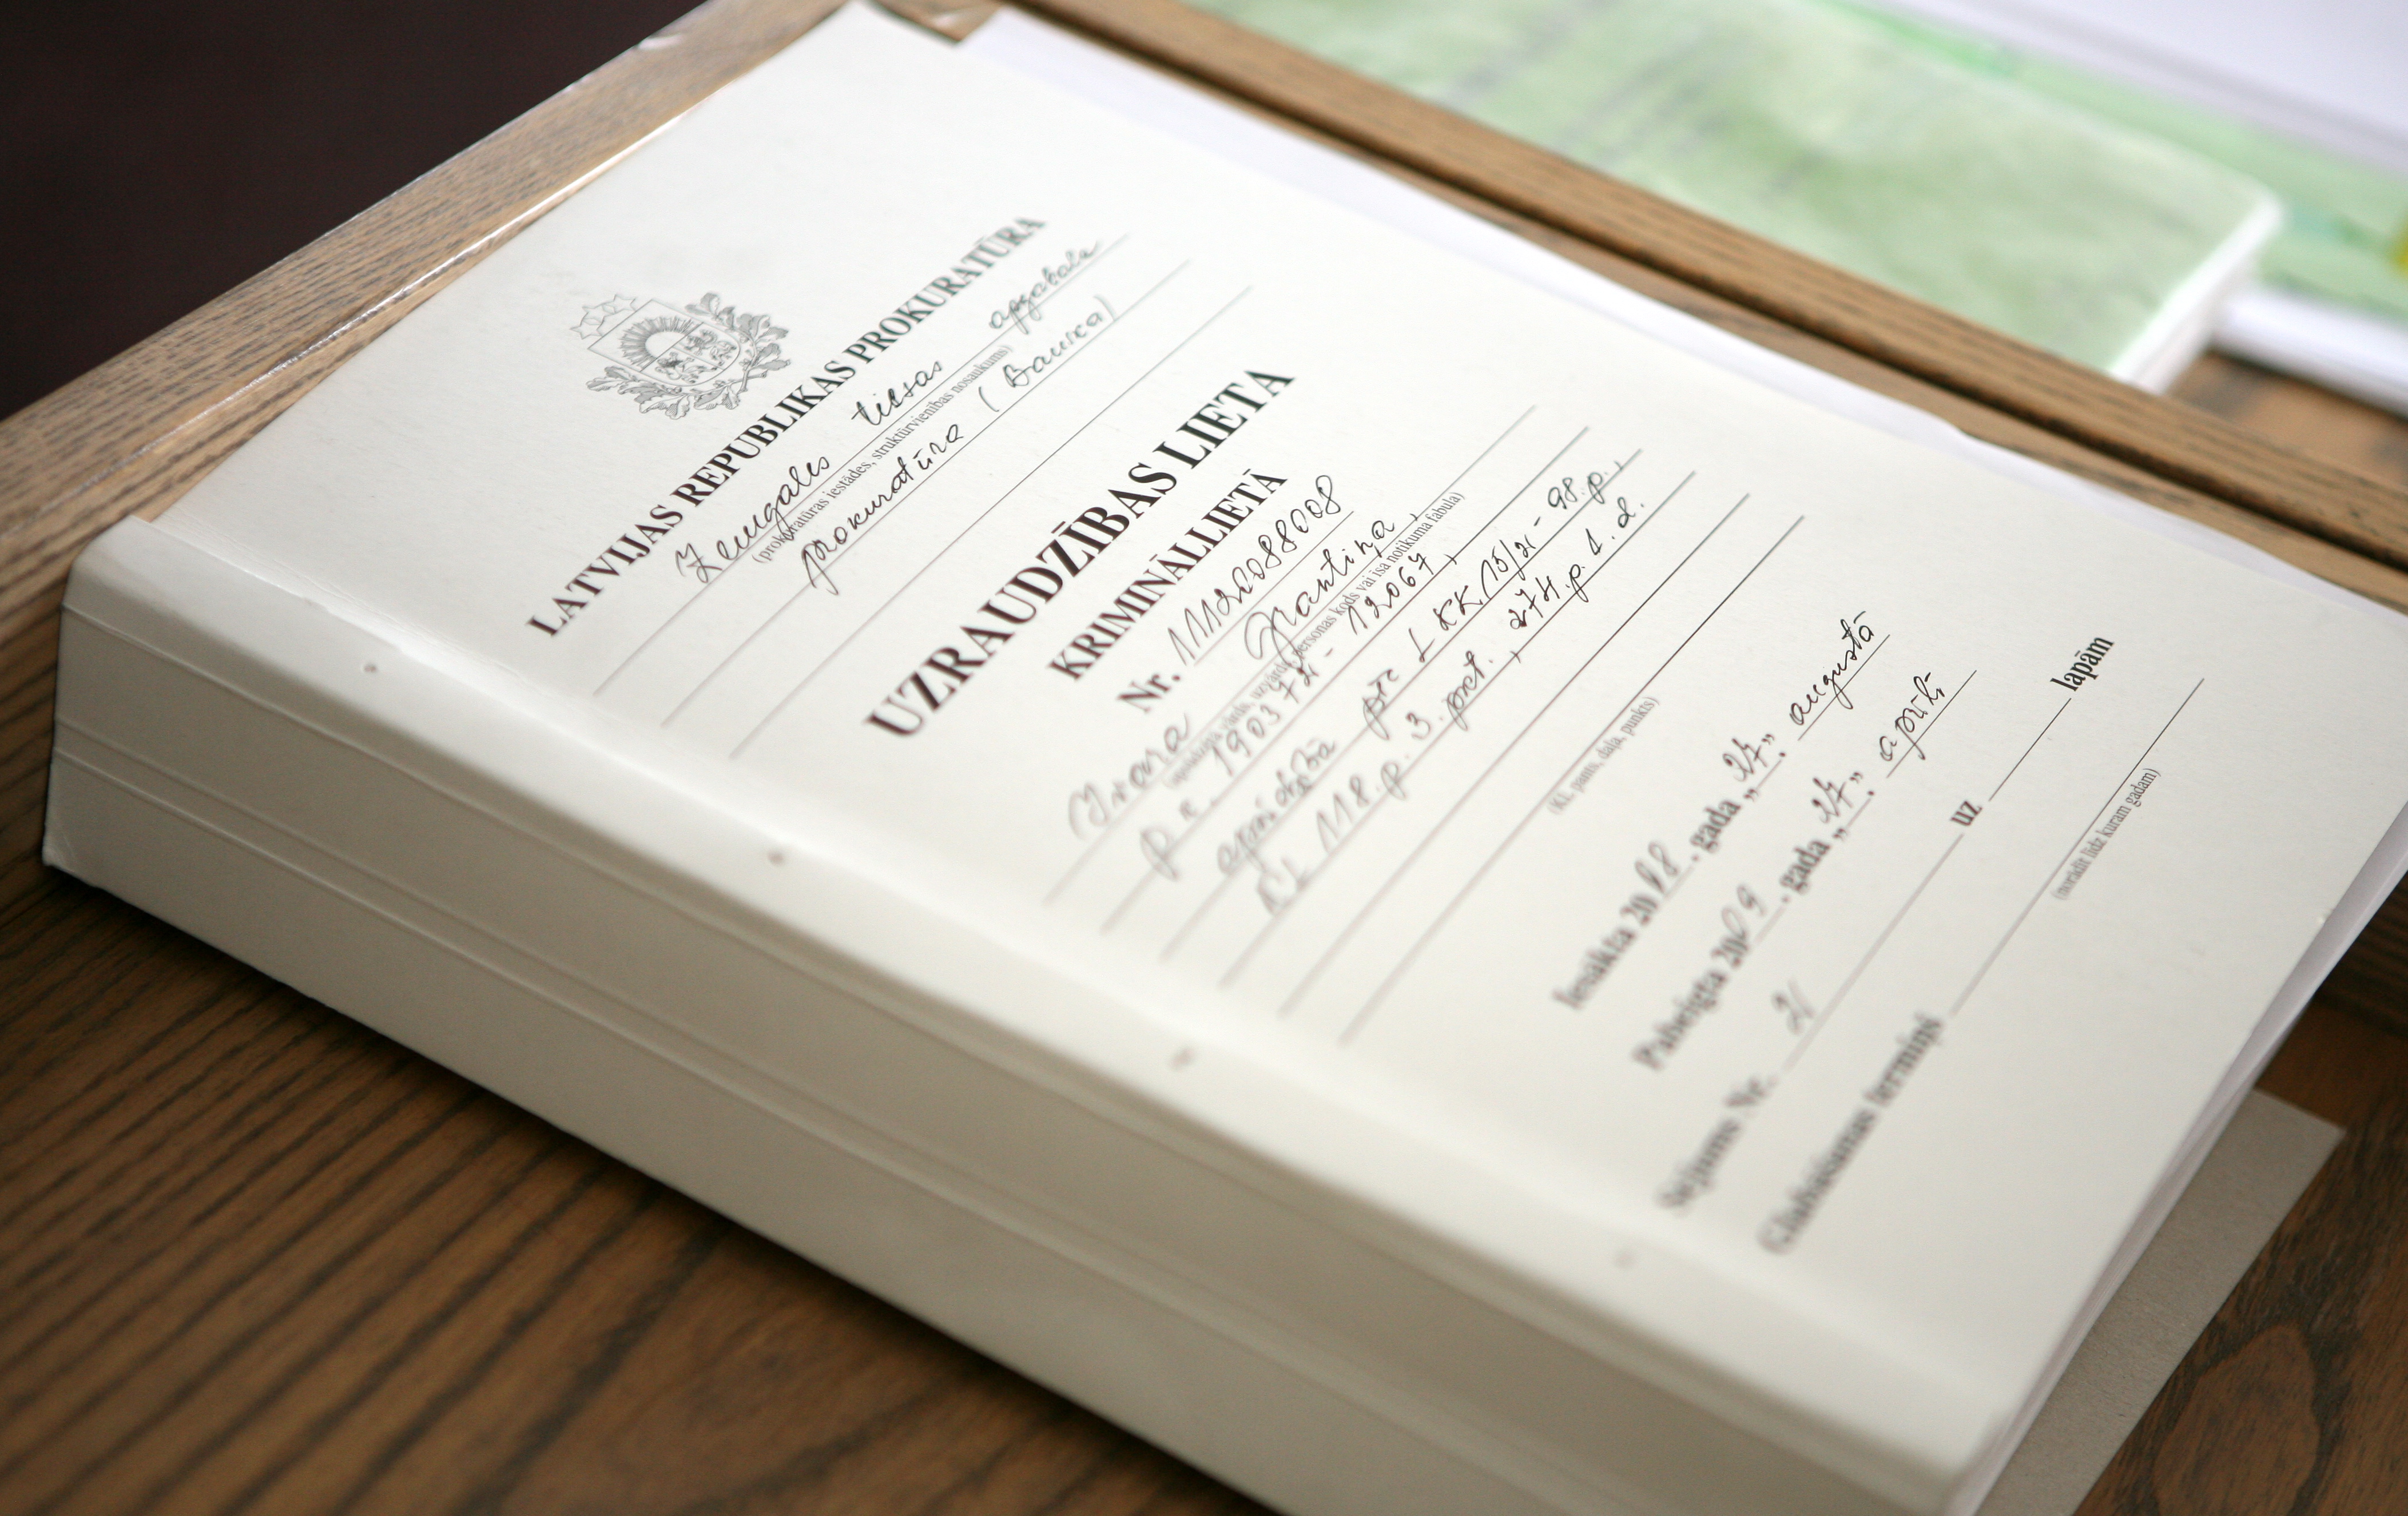 LATVIJAS REPUBLIKAS PROKURATŪRA
Zemgales tiesas apgabala
(prokuratūras iestādes, struktūrvienības nosaukums)
prokuratūra (Bauska)
UZRAUDZĪBAS LIETA
KRIMINĀLLIETĀ
Nr. 11120088008
Ivara Grantiņa,
(apsūdzētā vārds, uzvārds, personas kods vai īsa notikuma fabula)
p.k. 190374-12067,
apsūdzībā pēc LKK 15/21-98.p.,
KL 118.p. 3. pkt., 274.p. 1.d.
(KL pants, daļa, punkts)
Iesākta 2008. gada „27". augustā
Pabeigta 2009. gada „27". aprīlī
Sējums Nr. 21 uz lapām
Glabāšanas termiņš
(norādīt līdz kuram gadam)